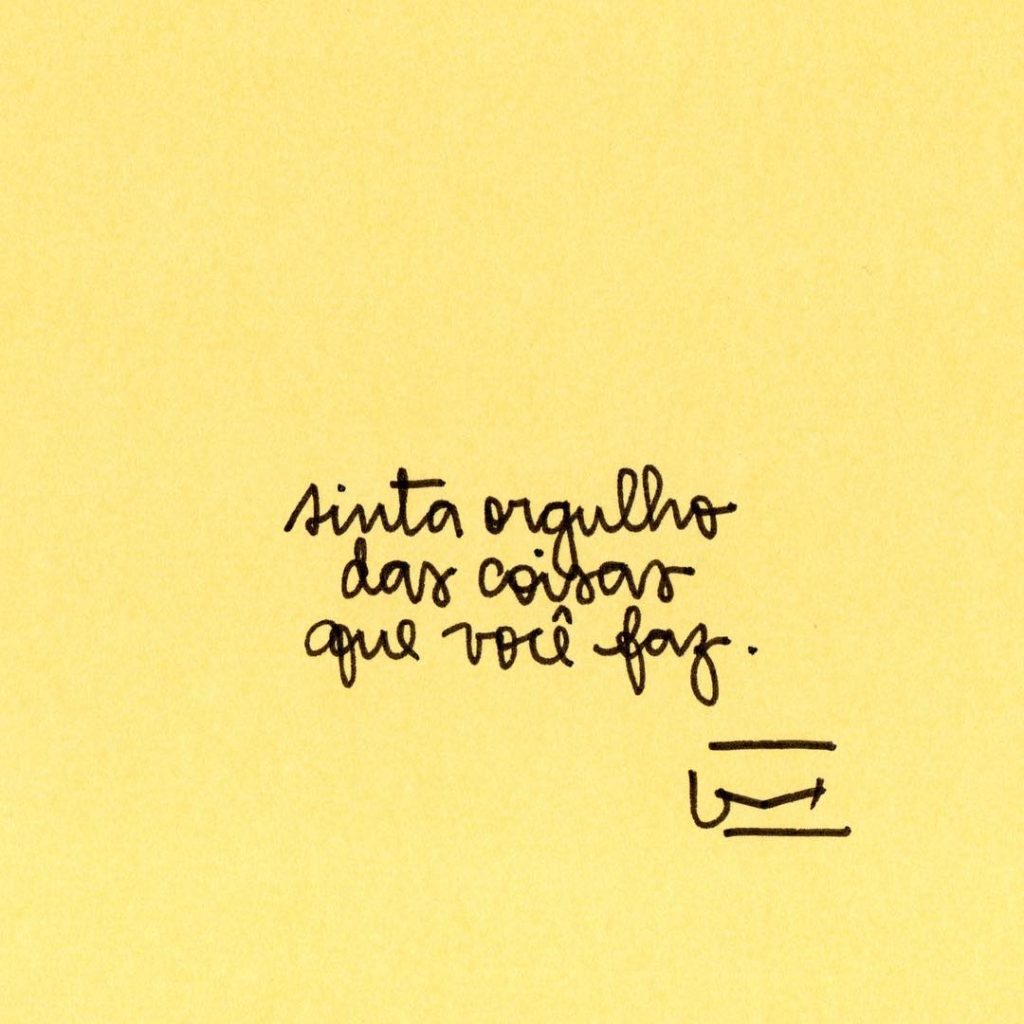 sinta orgulho
das coisas
que você faz.